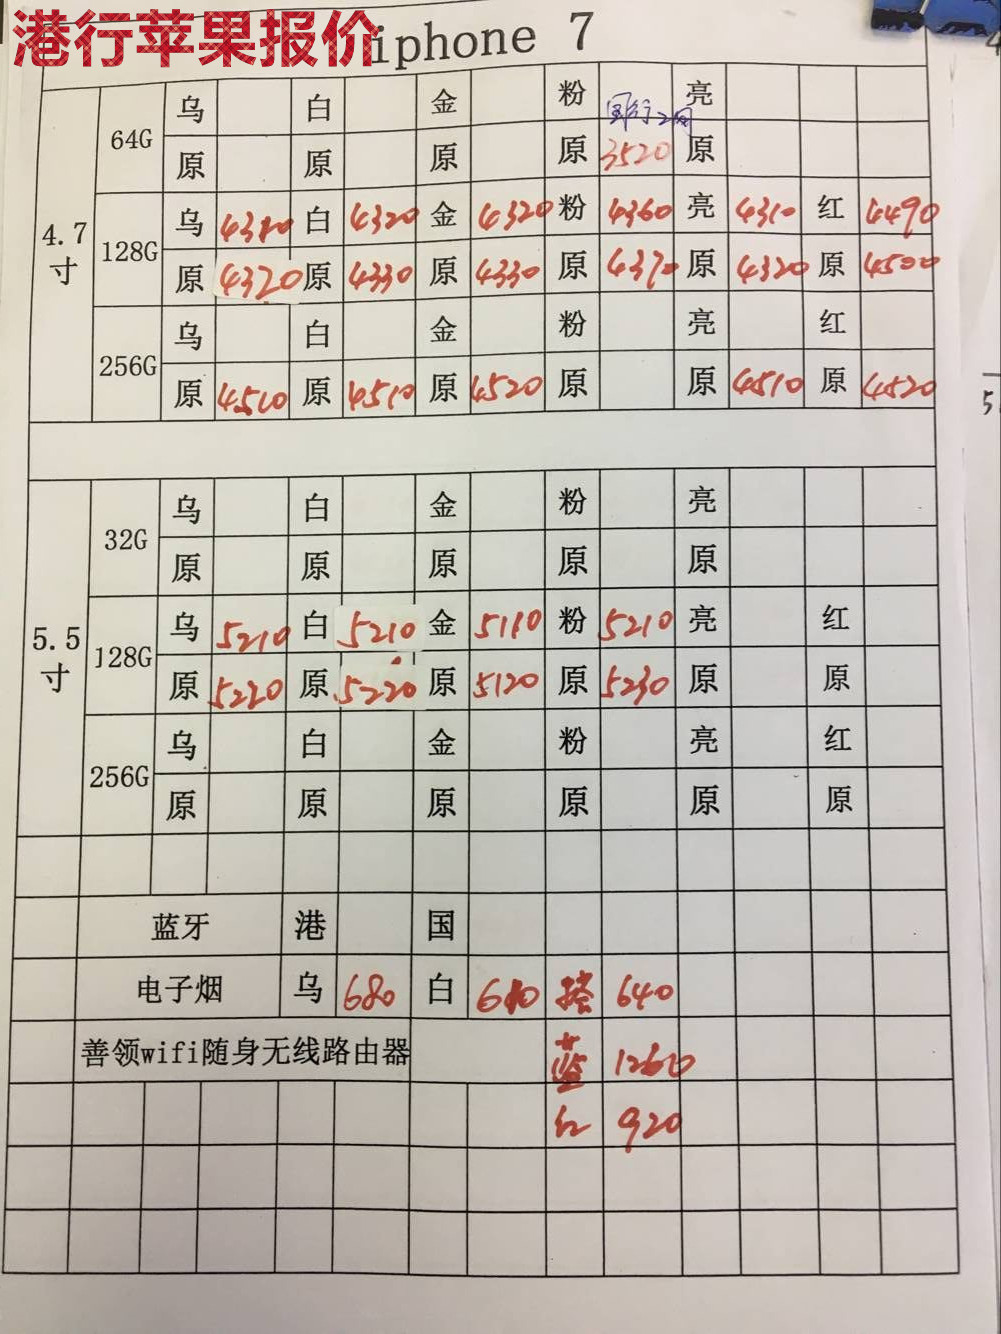 港行苹果报价
iphone 7
乌 白 金 粉 国行2网 亮
64G
原 原 原 原 3520 原
4.7寸
乌 白 4320 金 4320 粉 4360 亮 4310 红 4490
128G
原 4320 原 4330 原 4330 原 4370 原 4320 原 4500
乌 白 金 粉 亮 红
256G
原 4510 原 4510 原 4520 原 原 4510 原 4520
乌 白 金 粉 亮
32G
原 原 原 原 原
5.5寸
乌 5210 白 5210 金 5110 粉 5210 亮 红
128G
原 5220 原 5220 原 5120 原 5230 原 原
乌 白 金 粉 亮 红
256G
原 原 原 原 原 原
蓝牙 港 国
电子烟 乌 680 白 640
善领wifi随身无线路由器 蓝 1260
红 920